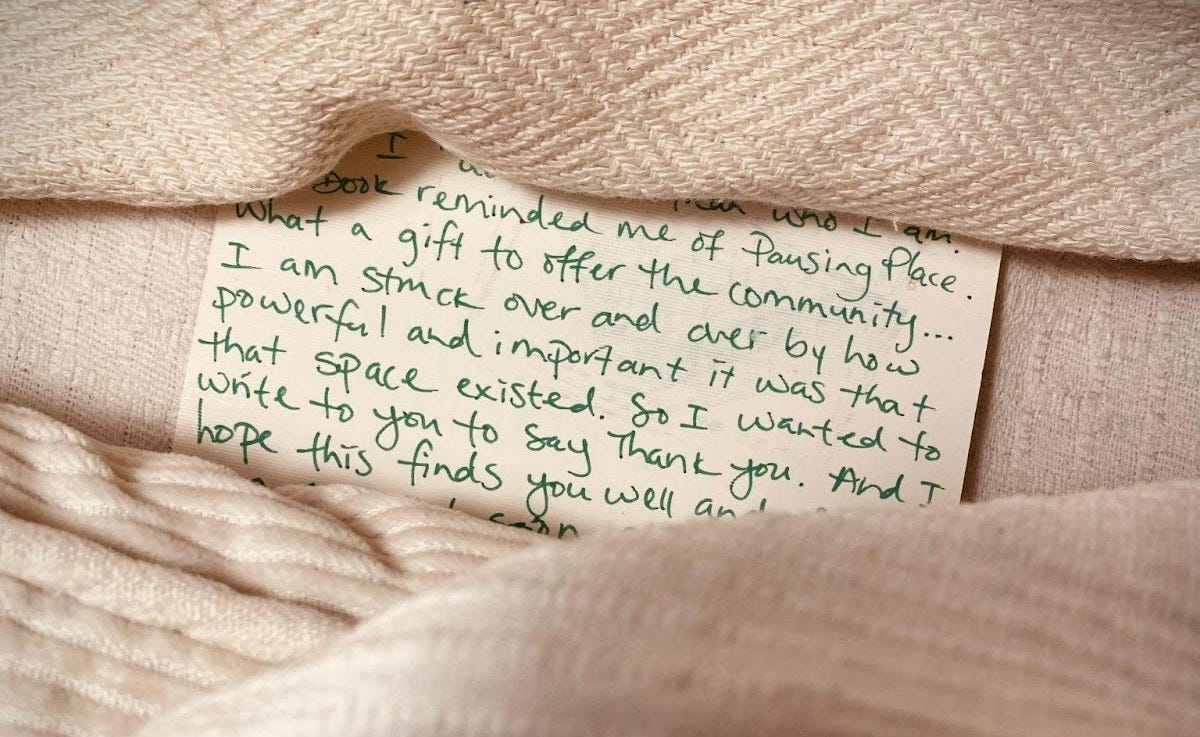 I
who I am.
Book reminded me of Pausing Place.
What a gift to offer the community...
I am struck over and over by how
powerful and important it was that
that space existed. So I wanted to
write to you to say Thank you. And I
hope this finds you well and
soon